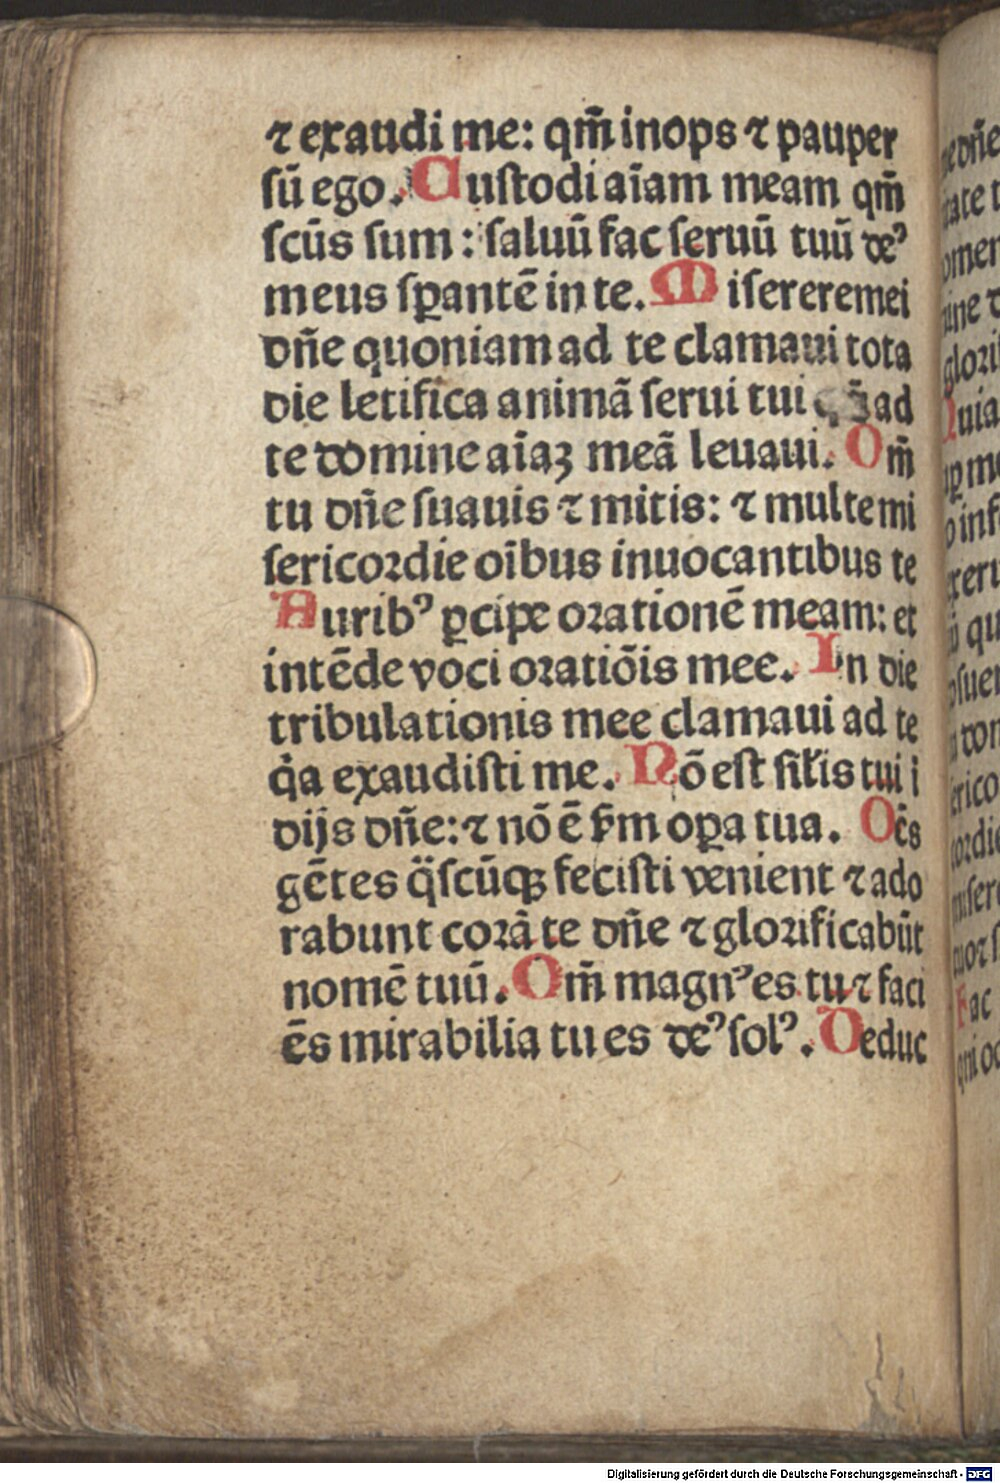 ⁊ exaudi me: qm̄ inops ⁊ pauper
ſū ego. Cuſtodi aīam meam qm̄
ſcūs ſum: ſaluū fac ſeruū tuū de⁹
meus ſꝑantē in te. Miſereremei
dn̄e quoniam ad te clamaui tota
die letifica animā ſerui tui ad
te domine aīaꝫ meā leuaui. Om̄
tu dn̄e ſuauis ⁊ mitis: ⁊ multe mi
ſericoꝛdie oībus inuocantibus te
Aurib⁹ ꝑcipe oꝛationē meam: et
intēde voci oꝛatiōis mee. In die
tribulationis mee clamaui ad te
q̇a exaudiſti me. Nō eſt ſil̄is tui i
dijs dn̄e: ⁊ nō ē ẜm oꝑa tua. Oēs
gētes q̈ſcūqꝫ feciſti venient ⁊ ado
rabunt coꝛā te dn̄e ⁊ gloꝛificabūt
nomē tuū. Om̄ magn⁹ es tu ⁊ faci
ēs mirabilia tu es de⁹ ſol⁹. Deduc
Digitalisierung gefördert durch die Deutsche Forschungsgemeinschaft - DFG